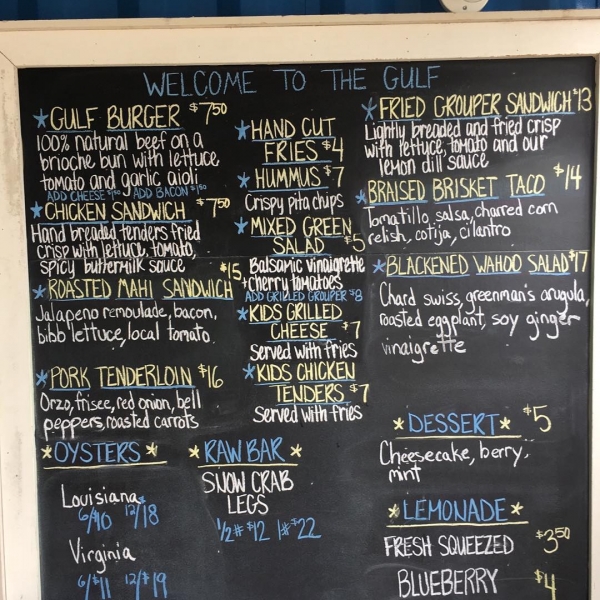 WELCOME TO THE GULF
*GULF BURGER $7.50
100% natural beef on a
brioche bun with lettuce
tomato and garlic aioli
ADD CHEESE $1.00 ADD BACON $1.50
*CHICKEN SANDWICH $7.50
Hand breaded tenders fried
crisp with lettuce, tomato,
spicy buttermilk sauce
*ROASTED MAHI SANDWICH $15
Jalapeno remoulade, bacon,
bibb lettuce, local tomato
*PORK TENDERLOIN $16
Orzo, frisee, red onion, bell
peppers, roasted carrots
*OYSTERS*
Louisiana
6/$10 12/$18
Virginia
6/$11 12/$19
*HAND CUT
FRIES $4
*HUMMUS $7
Crispy pita chips
*MIXED GREEN
SALAD $5
Balsamic vinaigrette
+cherry tomatoes
ADD GRILLED GROUPER $8
*KIDS GRILLED
CHEESE $7
Served with fries
*KIDS CHICKEN
TENDERS $7
Served with fries
*RAW BAR*
SNOW CRAB
LEGS
1/2# $12 1# $22
*FRIED GROUPER SANDWICH $13
Lightly breaded and fried crisp
with lettuce, tomato and our
lemon dill sauce
*BRAISED BRISKET TACO $14
Tomatillo salsa, charred corn
relish, cotija, cilantro
*BLACKENED WAHOO SALAD $17
Chard swiss, greenman's arugula,
roasted eggplant, soy ginger
vinaigrette
*DESSERT* $5
Cheesecake, berry,
mint
*LEMONADE*
FRESH SQUEEZED $3.50
BLUEBERRY $4